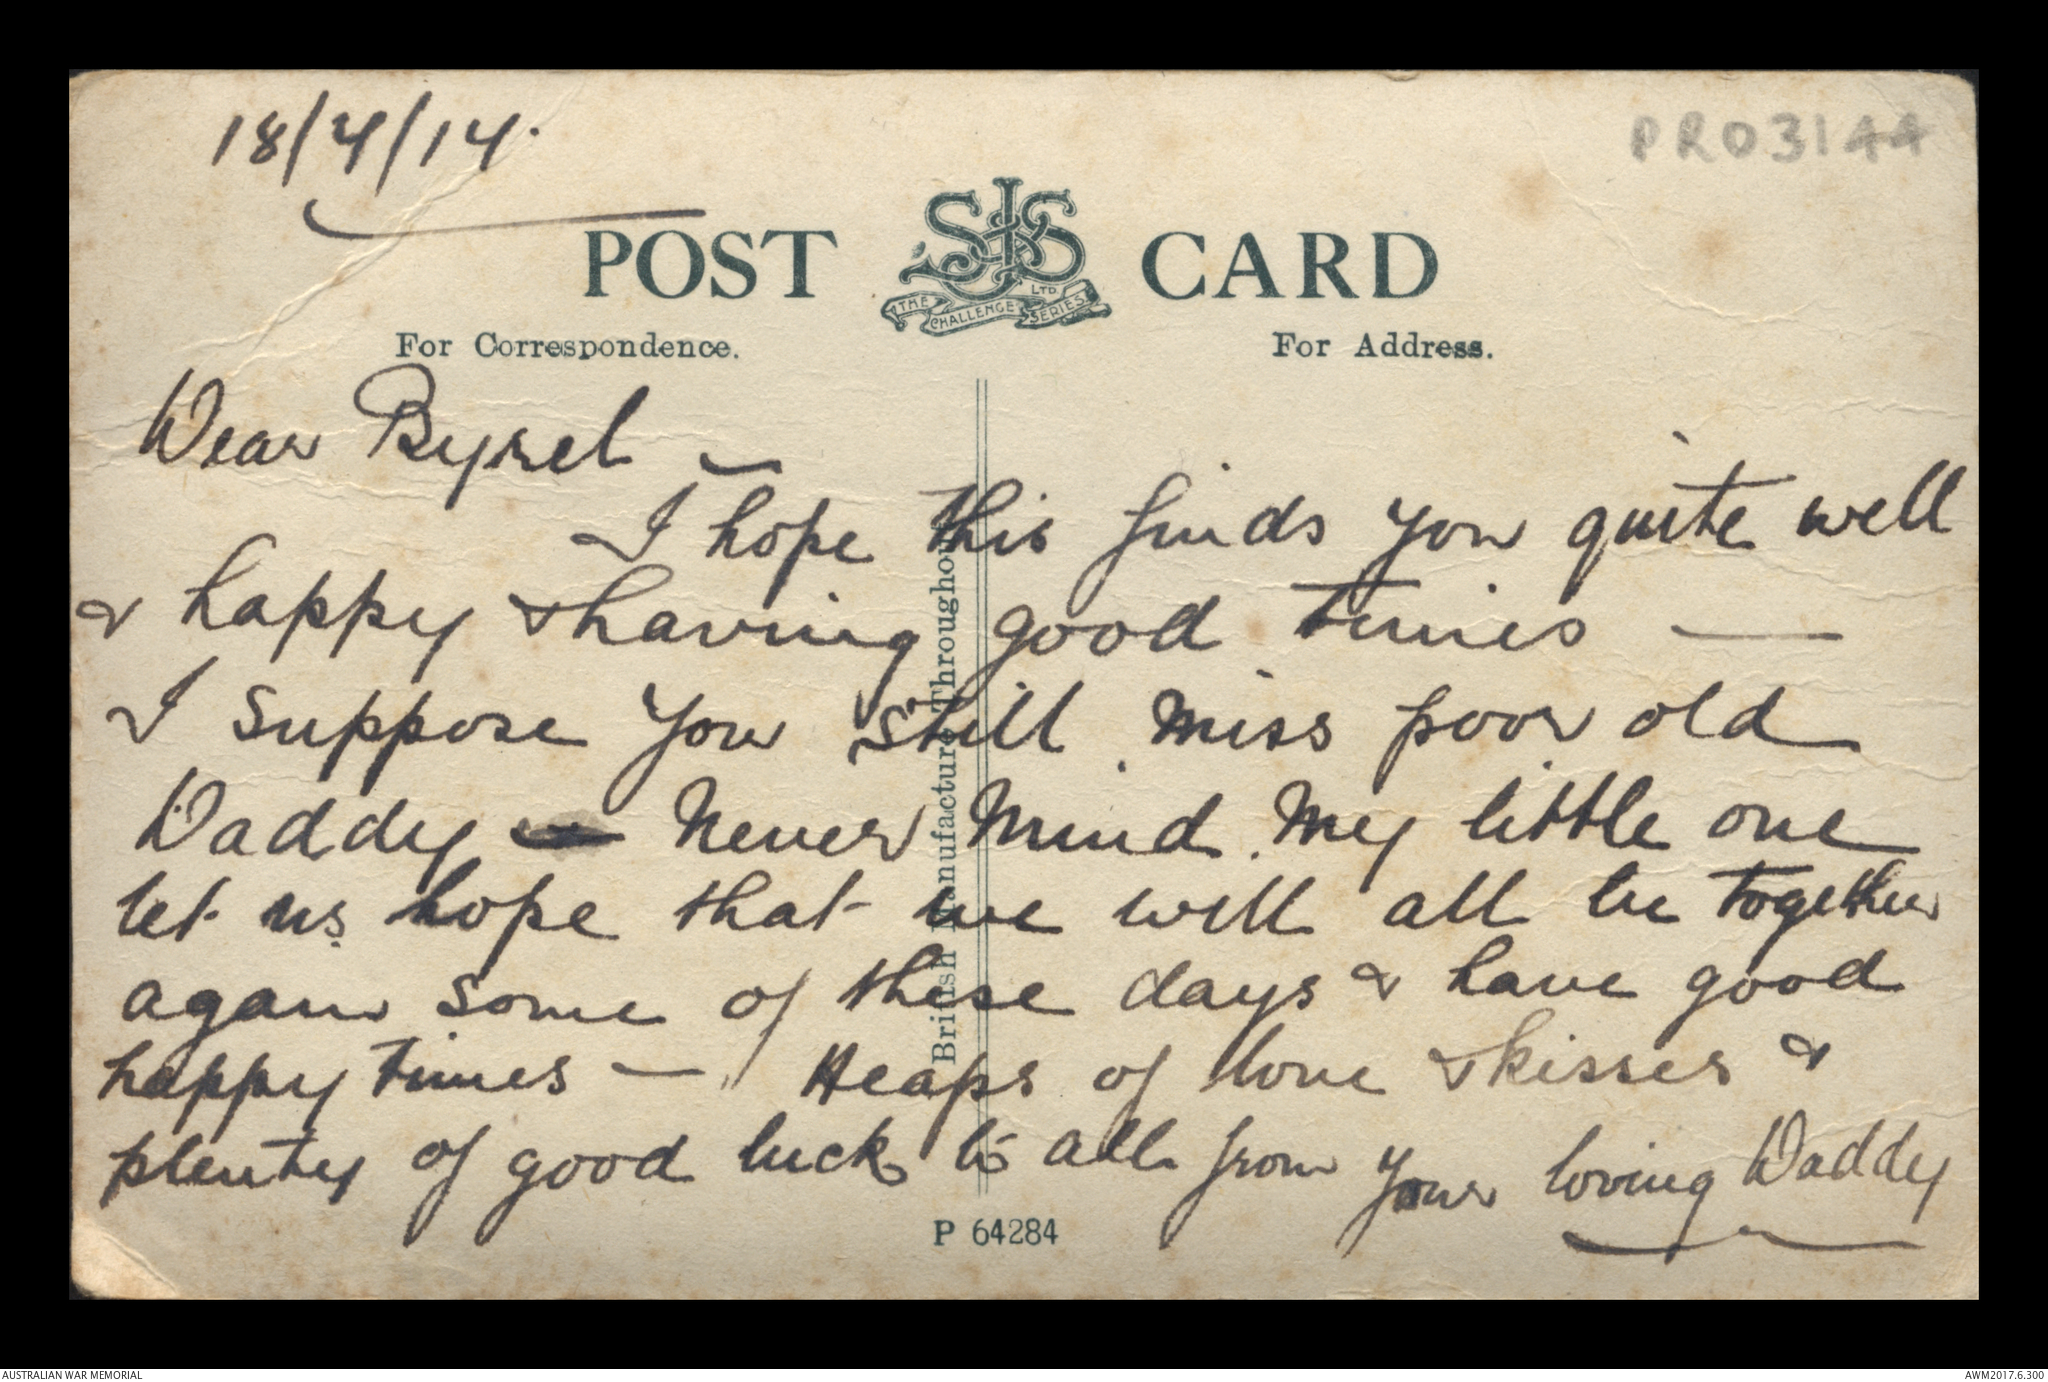 18/4/14.
PR03144
POST CARD
SJS LTD.
THE CHALLENGE SERIES
For Correspondence.
For Address.
Dear Byzel –
I hope this finds you quite well
& happy & having good times —
I suppose you still miss poor old
Daddy – Never mind my little one
let us hope that we will all be together
again some of these days & have good
happy times – Heaps of love & kisses &
plenty of good luck to all from your loving Daddy
British Manufacture Throughout
P 64284
AUSTRALIAN WAR MEMORIAL
AWM2017.6.300